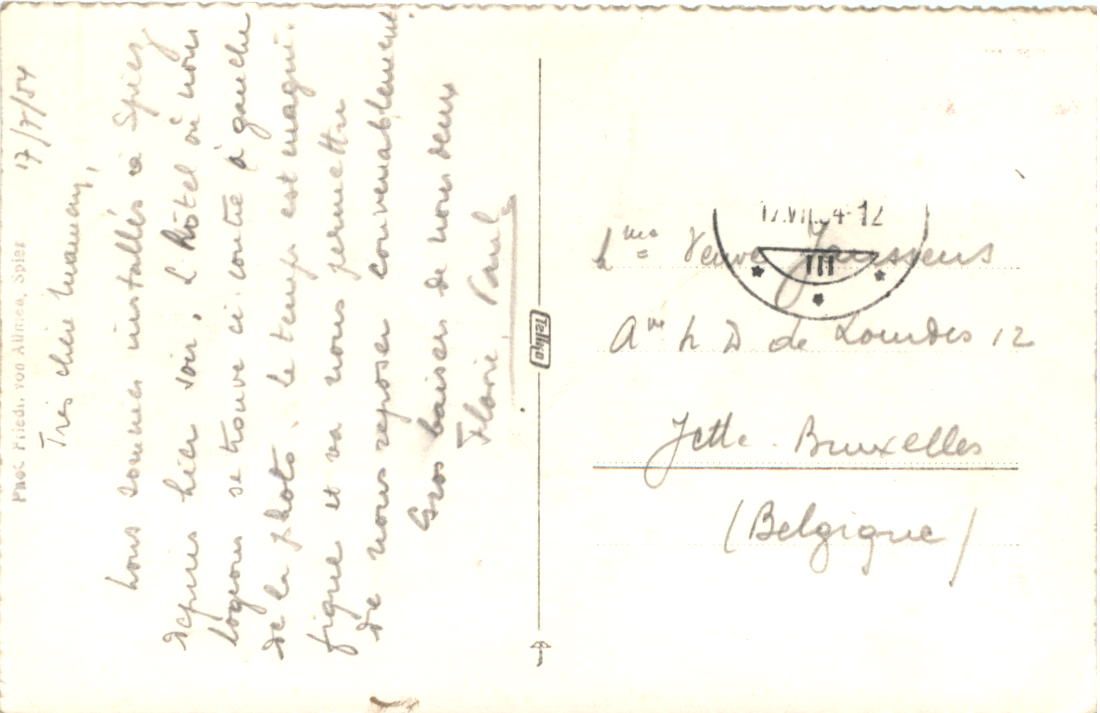 17/7/54
Très chère maman,
Nous sommes installés à Spiez
depuis hier soir, L'hôtel où nous
logeons se trouve ci-contre à gauche
de la photo. Le temps est magni-
fique et va nous permettre
de nous reposer convenablement.
Gros baisers de nous deux
Paul
Phot. Friedr. von Allmen, Spiez
Tellko
17.VII.54-12
III
Mme Veuve Janssens
Ave N D de Lourdes 12
Jette - Bruxelles
(Belgique)